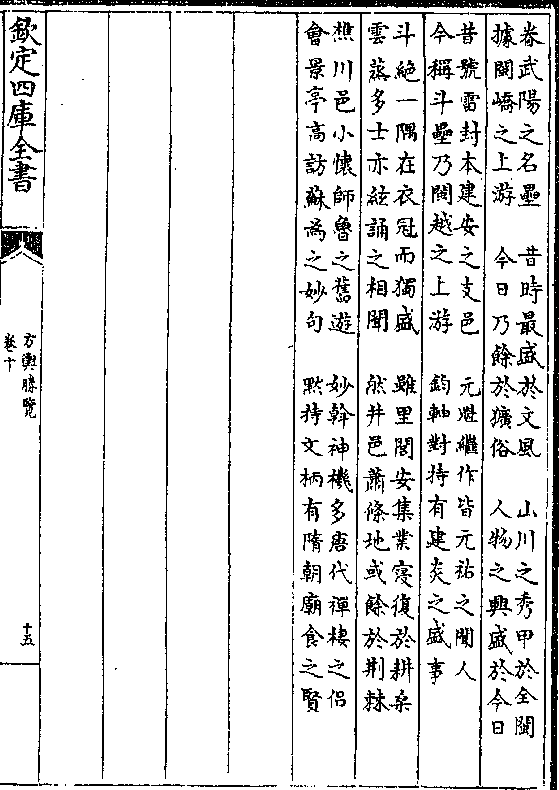 眷武陽之名壘　昔時最盛於文風　山川之秀甲於全閩
據閩嶠之上游　今日乃餘於獷俗　人物之興盛於今日
昔號雷封本建安之支邑　元魁繼作皆元祐之聞人
今稱斗壘乃閩越之上游　鈞軸對持有建炎之盛事
斗絶一隅在衣冠而獨盛　雖里閭安集業寖復於耕桑
雲蒸多士亦絃誦之相聞　然井邑蕭條地或餘於荆棘
樵川邑小懷師魯之舊遊　妙斡神機多唐代禪棲之侣
會景亭高訪蘇為之妙句　黙持文柄有隋朝廟食之賢
欽定四庫全書
方輿勝覽
卷十
十五